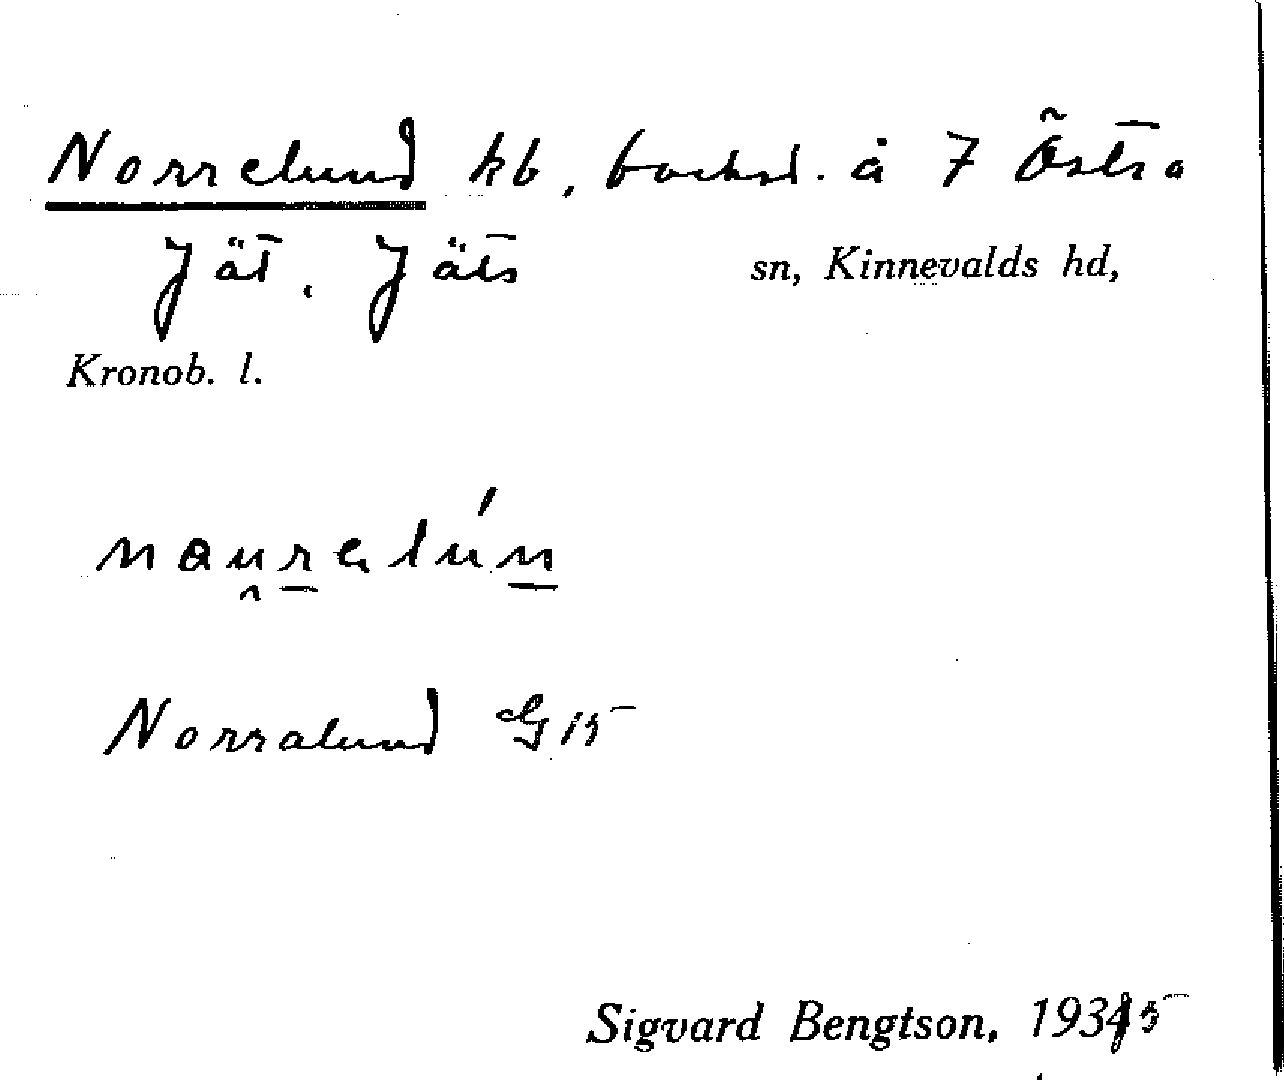 Norrelund kb, backst. å 7 Östra
Jät, Jäts sn, Kinnevalds hd,
Kronob. l.
Norralund G 15
Sigvard Bengtson, 1935